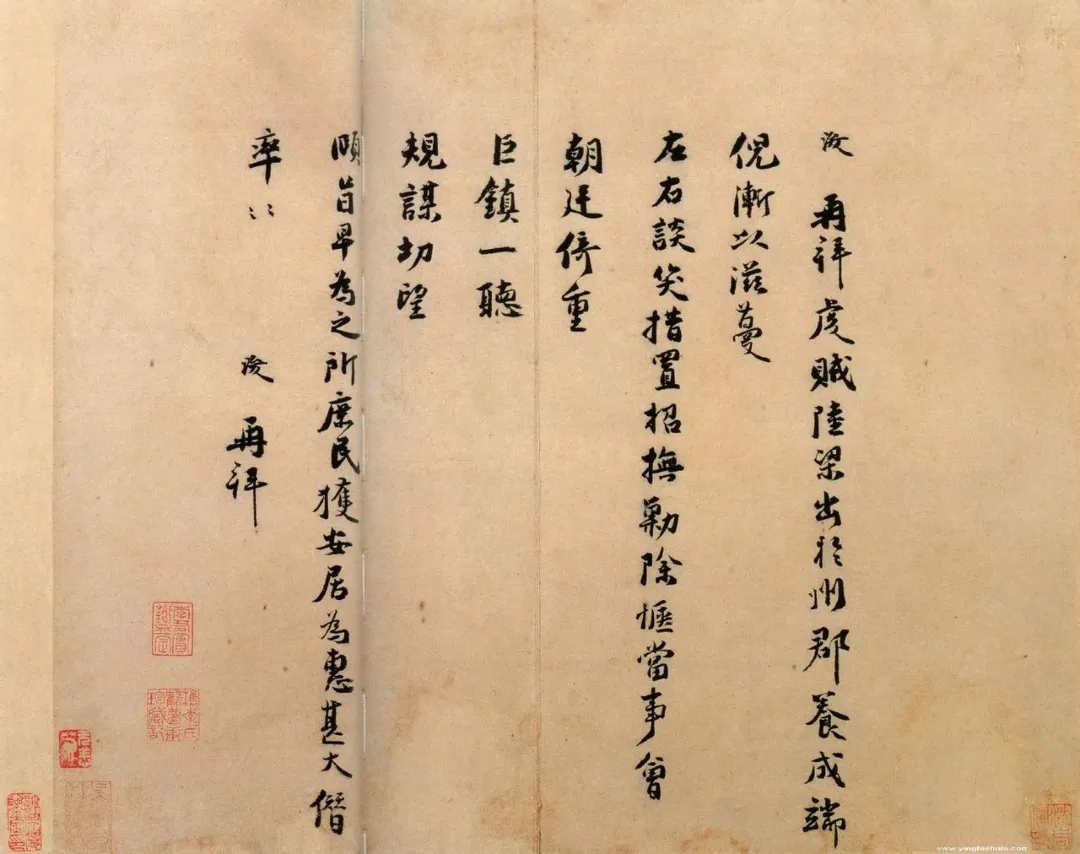 浚 再拜虔賊陸梁出於州郡養成端
倪漸以滋蔓
左右談笑措置招撫勦除愜當事會
朝廷倚重
巨鎮一聽
規謀切望
頤旨早為之所庶民獲安居為惠甚大僭
率〻 浚 再拜
www.yingbishufa.com